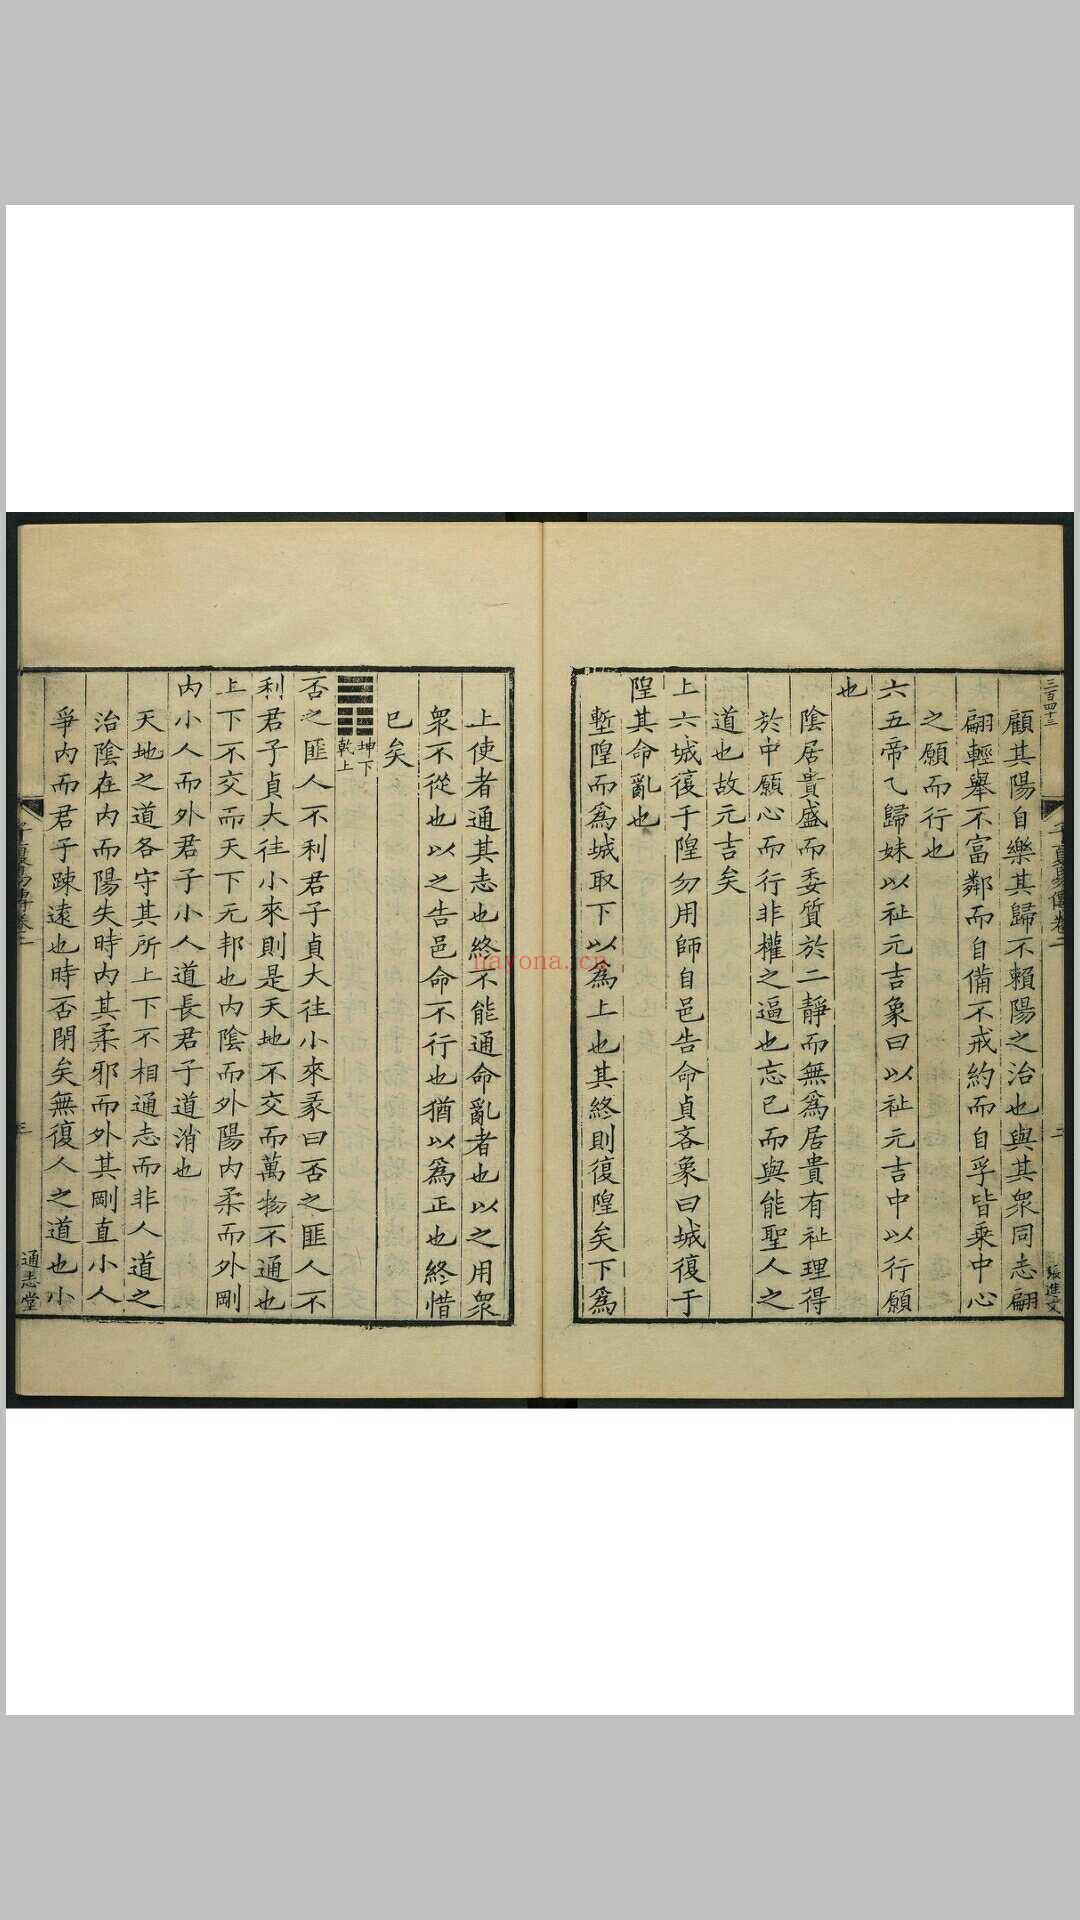 三百四十三
子夏易傳卷二
二
張進文
顧其陽自樂其歸不賴陽之治也與其衆同志翩
翩輕舉不富鄰而自備不戒約而自孚皆乗中心
之願而行也
六五帝乙歸妹以祉元吉象曰以祉元吉中以行願
也
陰居貴盛而委質於二靜而無爲居貴有祉理得
於中願心而行非權之逼也忘已而與能聖人之
道也故元吉矣
上六城復于隍勿用師自邑告命貞吝象曰城復于
隍其命亂也
塹隍而爲城取下以爲上也其終則復隍矣下爲
上使者通其志也終不能通命亂者也以之用衆
衆不從也以之告邑命不行也猶以爲正也終惜
已矣
坤下
乾上
否之匪人不利君子貞大往小來彖曰否之匪人不
利君子貞大往小來則是天地不交而萬物不通也
上下不交而天下无邦也内陰而外陽内柔而外剛
内小人而外君子小人道長君子道消也
天地之道各守其所上下不相通志而非人道之
治陰在内而陽失時内其柔邪而外其剛直小人
爭内而君子踈遠也時否閉矣無復人之道也小
子夏易傳卷二
三
通志堂
nayona.cn